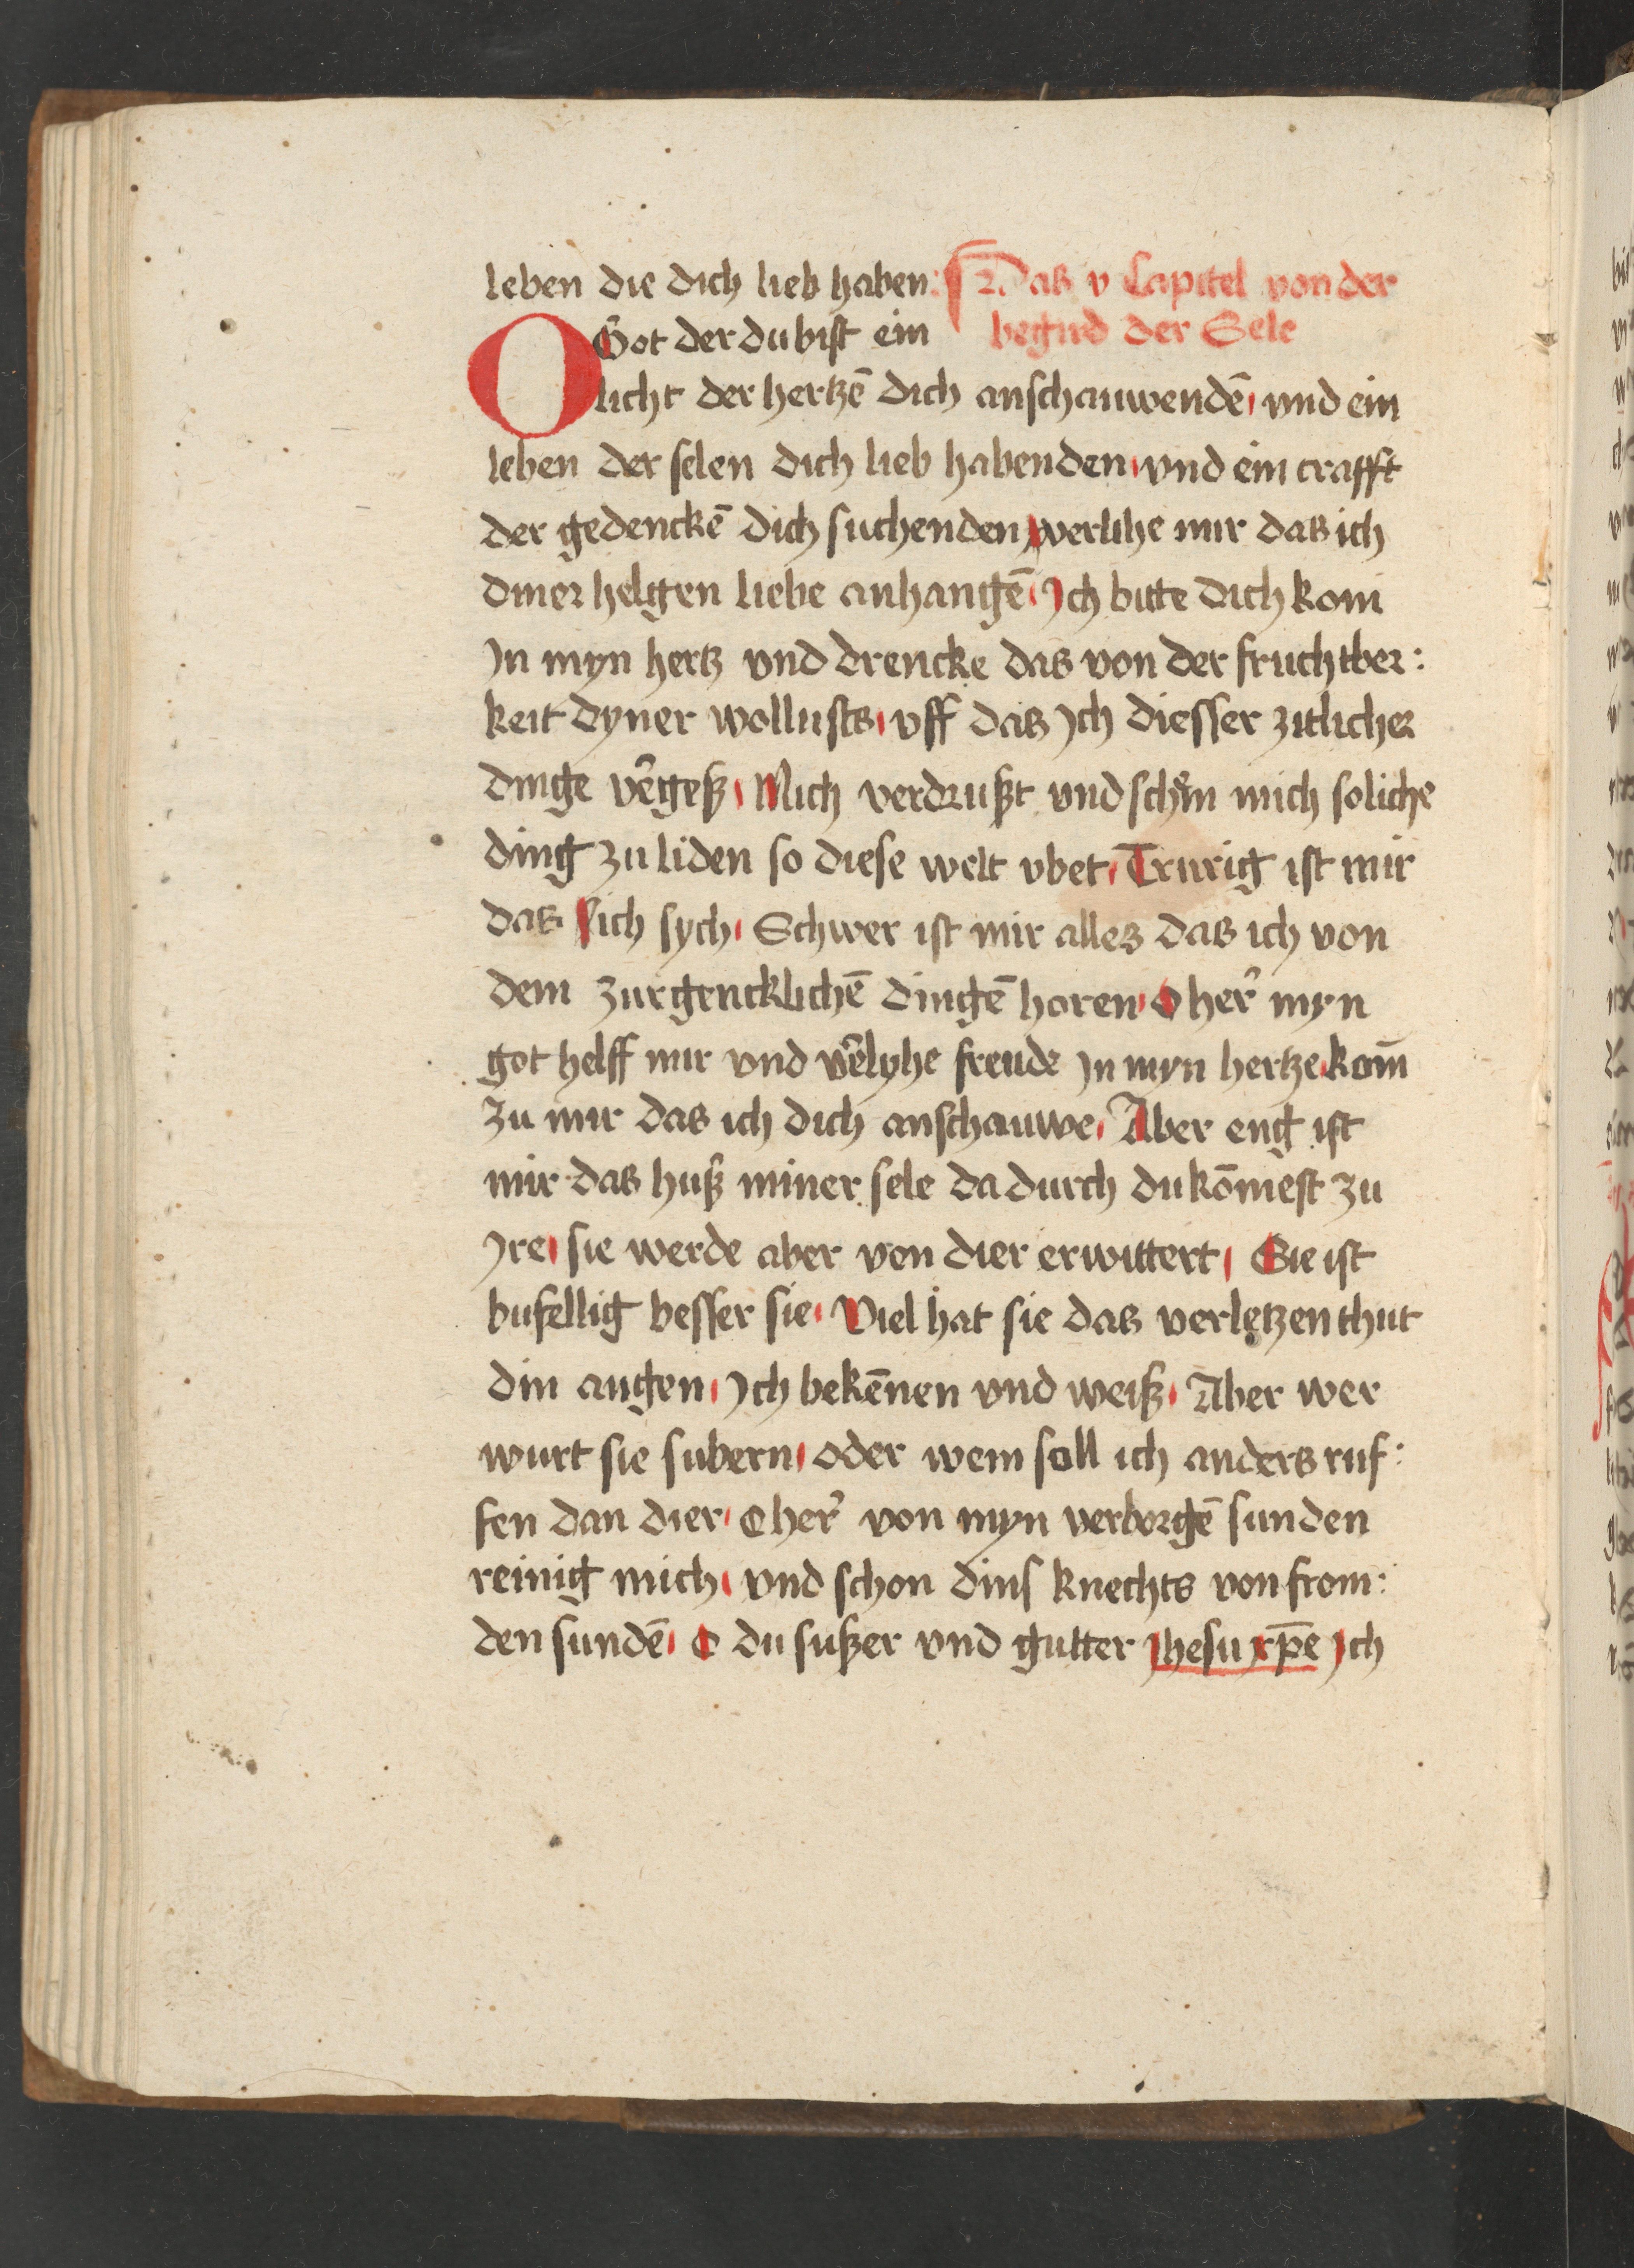 leben die dich lieb haben: Das v Capitel von der
begird der Sele
O Got der du bist ein
licht der hertzē dich anschauwendē vnd ein
leben der selen dich lieb habenden vnd ein crafft
der gedenckē dich suchenden verlihe mir das ich
diner helgen liebe anhangē Ich bitte dich kom
In myn hertz vnd drencke das von der fruchtber:
keit dyner wollusts vff das Ich diesser zitlicher
dinge v̄geß Mich verdrußt vnd schem mich soliche
ding zu liden so diese welt vbet Trurig ist mir
das ich sych Schwer ist mir alles das ich von
dem zurgencklichē dingē horen O her̄ myn
got helff mir vnd v̄lyhe freude In myn hertze kom̄
zu mir das ich dich anschauwe Aber eng ist
mir das huß miner sele da durch du kōmest zu
Ire sie werde aber von dier erwittert Sie ist
bufellig besser sie Viel hat sie das verletzen thut
din augen Ich bekēnen vnd weiß Aber wer
wurt sie subern oder wem soll ich anders ruf:
fen dan dier O her̄ von myn verborgē sunden
reinig mich vnd schon dins knechts von from:
den sundē O du sußer vnd gutter Ihesu xp̄e Ich